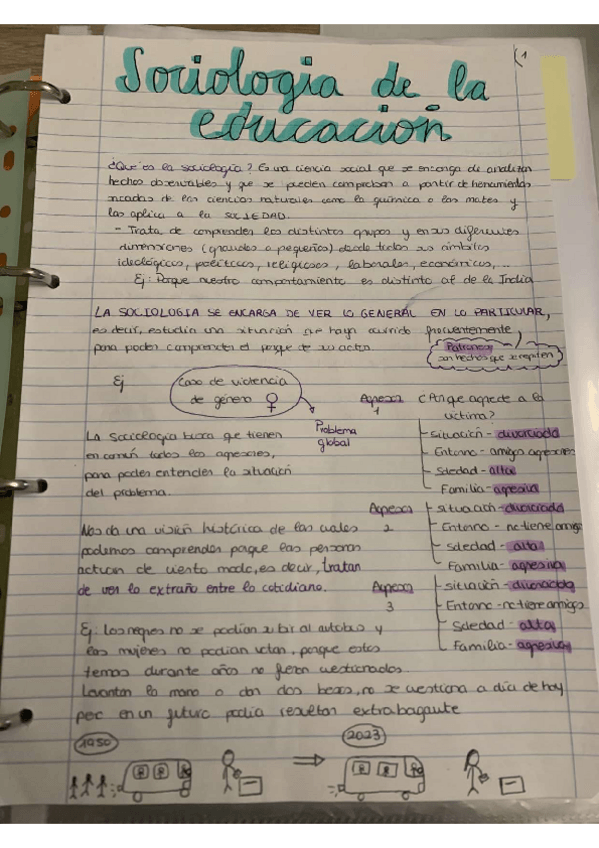 Sociologia de la
educación
¿Que es la sociología? Es una ciencia social que se encarga de analizar
hechos observables y que se pueden comprobar a partir de herramientas
sacadas de las ciencias naturales como la química o las mates y
las aplica a la SOCIEDAD.
- Trata de comprender los distintos grupos y en sus diferentes
dimensiones (grandes o pequeños) desde todos sus ámbitos
ideológicos, políticos, religiosos, laborales, económicos,...
Ej: Porque nuestro comportamiento es distinto al de la India
LA SOCIOLOGIA SE ENCARGA DE VER LO GENERAL EN LO PARTICULAR,
es decir, estudia una situación que haya ocurrido frecuentemente,
para poder comprender el porque de su acto.
Patrones
son hechos que se repiten
Ej
Caso de violencia
de género ♀
Problema
global
La sociologia busca que tienen
en común todos los agresores,
para poder entender la situación
del problema.
Agresor
1
¿Porque agrede a la
victima?
Situación - divorciado
Entorno - amigo agresores
Soledad - alta
Familia - agresiva
Agresor
2
Situacion - divorciado
Entorno - no tiene amigo
Soledad - alta
Familia - agresiva
Agresor
3
Situación - divorciado
Entorno - no tiene amigos
Soledad - alta
Familia - agresiva
Nos da una visión histórica de las cuales
podemos comprender porque las personas
actuan de cierto modo, es decir, tratan
de ver lo extraño entre lo cotidiano.
Ej: Los negros no se podian subir al autobus y
las mujeres no podian votar, porque estos
temas durante años no fueron cuestionados.
Levantar la mano o dar dos besos, no se cuestiona a dia de hoy
pero en un futuro podia resultar extrabagante
1950
2023